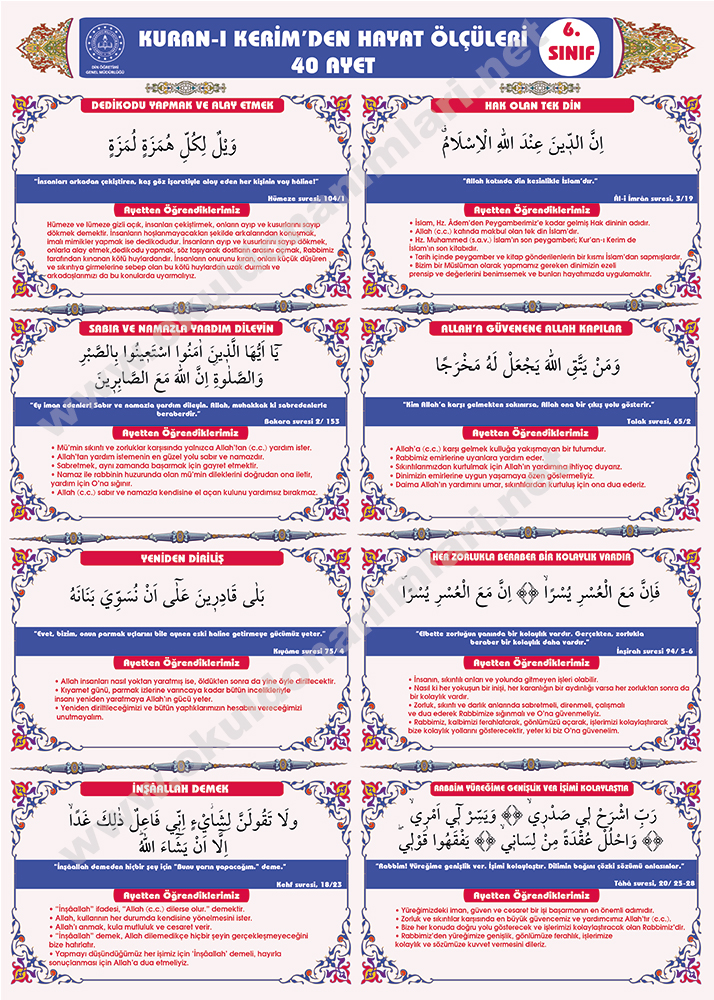 DİN ÖĞRETİMİ
GENEL MÜDÜRLÜĞÜ
KURAN-I KERİM'DEN HAYAT ÖLÇÜLERİ
40 AYET
6.
SINIF
DEDİKODU YAPMAK VE ALAY ETMEK
وَيْلٌ لِكُلِّ هُمَزَةٍ لُمَزَةٍ
"İnsanları arkadan çekiştiren, kaş göz işaretiyle alay eden her kişinin vay hâline!"
Hümeze suresi, 104/1
Ayetten Öğrendiklerimiz
Hümeze ve lümeze gizli açık, insanları çekiştirmek, onların ayıp ve kusurlarını sayıp
dökmek demektir. İnsanların hoşlanmayacakları şekilde arkalarından konuşmak,
imalı mimikler yapmak ise dedikodudur. İnsanların ayıp ve kusurlarını sayıp dökmek,
onlarla alay etmek,dedikodu yapmak, söz taşıyarak dostların arasını açmak, Rabbimiz
tarafından kınanan kötü huylardandır. İnsanların onurunu kıran, onları küçük düşüren
ve sıkıntıya girmelerine sebep olan bu kötü huylardan uzak durmalı ve
arkadaşlarımızı da bu konularda uyarmalıyız.
HAK OLAN TEK DİN
اِنَّ الدّ۪ينَ عِنْدَ اللّٰهِ الْاِسْلَامُ۠
"Allah katında din kesinlikle İslam'dır."
Âl-i İmrân suresi, 3/19
Ayetten Öğrendiklerimiz
• İslam, Hz. Âdem'den Peygamberimiz'e kadar gelmiş Hak dininin adıdır.
• Allah (c.c.) katında makbul olan tek din İslam'dır.
• Hz. Muhammed (s.a.v.) İslam'ın son peygamberi; Kur'an-ı Kerim de
İslam'ın son kitabıdır.
• Tarih içinde peygamber ve kitap gönderilenlerin bir kısmı İslam'dan sapmışlardır.
• Bizim bir Müslüman olarak yapmamız gereken dinimizin ezeli
prensip ve değerlerini benimsemek ve bunları hayatımızda uygulamaktır.
SABIR VE NAMAZLA YARDIM DİLEYİN
يَٓا اَيُّهَا الَّذ۪ينَ اٰمَنُوا اسْتَع۪ينُوا بِالصَّبْرِ
وَالصَّلٰوةِ اِنَّ اللّٰهَ مَعَ الصَّابِر۪ينَ
"Ey iman edenler! Sabır ve namazla yardım dileyin. Allah, muhakkak ki sabredenlerle
beraberdir."
Bakara suresi 2/ 153
Ayetten Öğrendiklerimiz
• Mü'min sıkıntı ve zorluklar karşısında yalnızca Allah'tan (c.c.) yardım ister.
• Allah'tan yardım istemenin en güzel yolu sabır ve namazdır.
• Sabretmek, aynı zamanda başarmak için gayret etmektir.
• Namaz ile rabbinin huzurunda olan mü'min dileklerini doğrudan ona iletir,
yardım için O'na sığınır.
• Allah (c.c.) sabır ve namazla kendisine el açan kulunu yardımsız bırakmaz.
ALLAH'A GÜVENENE ALLAH KAPILAR
وَمَنْ يَتَّقِ اللّٰهَ يَجْعَلْ لَهُ مَخْرَجًا
"Kim Allah'a karşı gelmekten sakınırsa, Allah ona bir çıkış yolu gösterir."
Talak suresi, 65/2
Ayetten Öğrendiklerimiz
• Allah'a (c.c.) karşı gelmek kulluğa yakışmayan bir tutumdur.
• Rabbimiz emirlerine uyanlara yardım eder.
• Sıkıntılarımızdan kurtulmak için Allah'ın yardımına ihtiyaç duyarız.
• Dinimizin emirlerine uygun yaşamaya özen göstermeliyiz.
• Daima Allah'ın yardımını umar, sıkıntılardan kurtuluş için ona dua ederiz.
YENİDEN DİRİLİŞ
بَلٰى قَادِر۪ينَ عَلٰٓى اَنْ نُسَوِّيَ بَنَانَهُ
"Evet, bizim, onun parmak uçlarını bile aynen eski haline getirmeye gücümüz yeter."
Kıyâme suresi 75/ 4
Ayetten Öğrendiklerimiz
• Allah insanları nasıl yoktan yaratmış ise, öldükten sonra da yine öyle diriltecektir.
• Kıyamet günü, parmak izlerine varıncaya kadar bütün incelikleriyle
insanı yeniden yaratmaya Allah'ın gücü yeter.
• Yeniden diriltileceğimizi ve bütün yaptıklarımızın hesabını vereceğimizi
unutmayalım.
HER ZORLUKLA BERABER BİR KOLAYLIK VARDIR
فَاِنَّ مَعَ الْعُسْرِ يُسْرًاۙ ﴿﴾ اِنَّ مَعَ الْعُسْرِ يُسْرًاۜ
"Elbette zorluğun yanında bir kolaylık vardır. Gerçekten, zorlukla
beraber bir kolaylık daha vardır."
İnşirah suresi 94/ 5-6
Ayetten Öğrendiklerimiz
• İnsanın, sıkıntılı anları ve yolunda gitmeyen işleri olabilir.
• Nasıl ki her yokuşun bir inişi, her karanlığın bir aydınlığı varsa her zorluktan sonra da
bir kolaylık vardır.
• Zorluk, sıkıntı ve darlık anlarında sabretmeli, direnmeli, çalışmalı
ve dua ederek Rabbimize sığınmalı ve O'na güvenmeliyiz.
• Rabbimiz, kalbimizi ferahlatarak, gönlümüzü açarak, işlerimizi kolaylaştırarak
bize kolaylık yollarını gösterecektir, yeter ki biz O'na güvenelim.
İNŞÂALLAH DEMEK
وَلَا تَقُولَنَّ لِشَا۬يْءٍ اِنّ۪ي فَاعِلٌ ذٰلِكَ غَدًاۙ
اِلَّٓا اَنْ يَشَٓاءَ اللّٰهُ
"İnşâallah demeden hiçbir şey için "Bunu yarın yapacağım." deme."
Kehf suresi, 18/23
Ayetten Öğrendiklerimiz
• "İnşâallah" ifadesi, "Allah (c.c.) dilerse olur." demektir.
• Allah, kullarının her durumda kendisine yönelmesini ister.
• Allah'ı anmak, kula mutluluk ve cesaret verir.
• "İnşâallah" demek, Allah dilemedikçe hiçbir şeyin gerçekleşmeyeceğini
bize hatırlatır.
• Yapmayı düşündüğümüz her işimiz için 'İnşâallah' demeli, hayırla
sonuçlanması için Allah'a dua etmeliyiz.
RABBİM YÜREĞİME GENİŞLİK VER İŞİMİ KOLAYLAŞTIR
رَبِّ اشْرَحْ ل۪ي صَدْر۪يۙ ﴿﴾ وَيَسِّرْ ل۪ٓي اَمْر۪يۙ
﴿﴾ وَاحْلُلْ عُقْدَةً مِنْ لِسَان۪يۙ ﴿﴾ يَفْقَهُوا قَوْل۪يۖ
"Rabbim! Yüreğime genişlik ver. İşimi kolaylaştır. Dilimin bağını çözki sözümü anlasınlar."
Tâhâ suresi, 20/ 25-28
Ayetten Öğrendiklerimiz
• Yüreğimizdeki iman, güven ve cesaret bir işi başarmanın en önemli adımıdır.
• Zorluk ve sıkıntılar karşısında en büyük güvencemiz ve yardımcımız Allah'tır (c.c.).
• Bize her konuda doğru yolu gösterecek ve işlerimizi kolaylaştıracak olan Rabbimiz'dir.
• Rabbimiz'den yüreğimize genişlik, gönlümüze ferahlık, işlerimize
kolaylık ve sözümüze kuvvet vermesini dileriz.
www.okuldonanimlari.net
www.okuldonanimlari.net